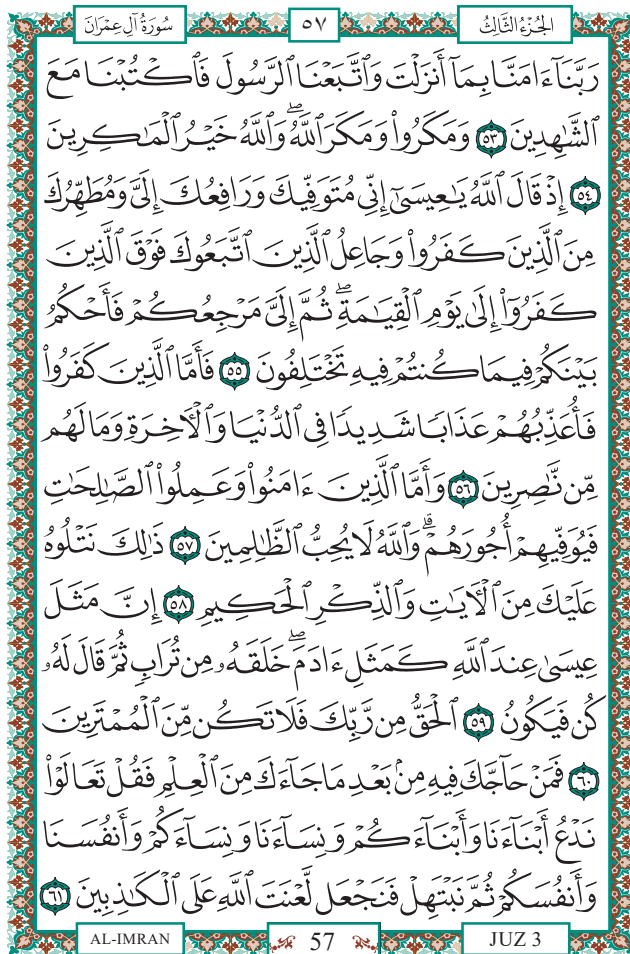 سُورَةُ آلِ عِمْرَانَ ٥٧ الجُزْءُ الثَّالِثُ
رَبَّنَآ ءَامَنَّا بِمَآ أَنزَلْتَ وَٱتَّبَعْنَا ٱلرَّسُولَ فَٱكْتُبْنَا مَعَ
ٱلشَّٰهِدِينَ ٥٣ وَمَكَرُوا۟ وَمَكَرَ ٱللَّهُۖ وَٱللَّهُ خَيْرُ ٱلْمَٰكِرِينَ
٥٤ إِذْ قَالَ ٱللَّهُ يَٰعِيسَىٰٓ إِنِّى مُتَوَفِّيكَ وَرَافِعُكَ إِلَىَّ وَمُطَهِّرُكَ
مِنَ ٱلَّذِينَ كَفَرُوا۟ وَجَاعِلُ ٱلَّذِينَ ٱتَّبَعُوكَ فَوْقَ ٱلَّذِينَ
كَفَرُوٓا۟ إِلَىٰ يَوْمِ ٱلْقِيَٰمَةِۖ ثُمَّ إِلَىَّ مَرْجِعُكُمْ فَأَحْكُمُ
بَيْنَكُمْ فِيمَا كُنتُمْ فِيهِ تَخْتَلِفُونَ ٥٥ فَأَمَّا ٱلَّذِينَ كَفَرُوا۟
فَأُعَذِّبُهُمْ عَذَابًا شَدِيدًا فِى ٱلدُّنْيَا وَٱلْءَاخِرَةِ وَمَا لَهُم
مِّن نَّٰصِرِينَ ٥٦ وَأَمَّا ٱلَّذِينَ ءَامَنُوا۟ وَعَمِلُوا۟ ٱلصَّٰلِحَٰتِ
فَيُوَفِّيهِمْ أُجُورَهُمْۗ وَٱللَّهُ لَا يُحِبُّ ٱلظَّٰلِمِينَ ٥٧ ذَٰلِكَ نَتْلُوهُ
عَلَيْكَ مِنَ ٱلْءَايَٰتِ وَٱلذِّكْرِ ٱلْحَكِيمِ ٥٨ إِنَّ مَثَلَ
عِيسَىٰ عِندَ ٱللَّهِ كَمَثَلِ ءَادَمَۖ خَلَقَهُۥ مِن تُرَابٍ ثُمَّ قَالَ لَهُۥ
كُن فَيَكُونُ ٥٩ ٱلْحَقُّ مِن رَّبِّكَ فَلَا تَكُن مِّنَ ٱلْمُمْتَرِينَ
٦٠ فَمَنْ حَآجَّكَ فِيهِ مِنۢ بَعْدِ مَا جَآءَكَ مِنَ ٱلْعِلْمِ فَقُلْ تَعَالَوْا۟
نَدْعُ أَبْنَآءَنَا وَأَبْنَآءَكُمْ وَنِسَآءَنَا وَنِسَآءَكُمْ وَأَنفُسَنَا
وَأَنفُسَكُمْ ثُمَّ نَبْتَهِلْ فَنَجْعَل لَّعْنَتَ ٱللَّهِ عَلَى ٱلْكَٰذِبِينَ ٦١
AL-IMRAN 57 JUZ 3